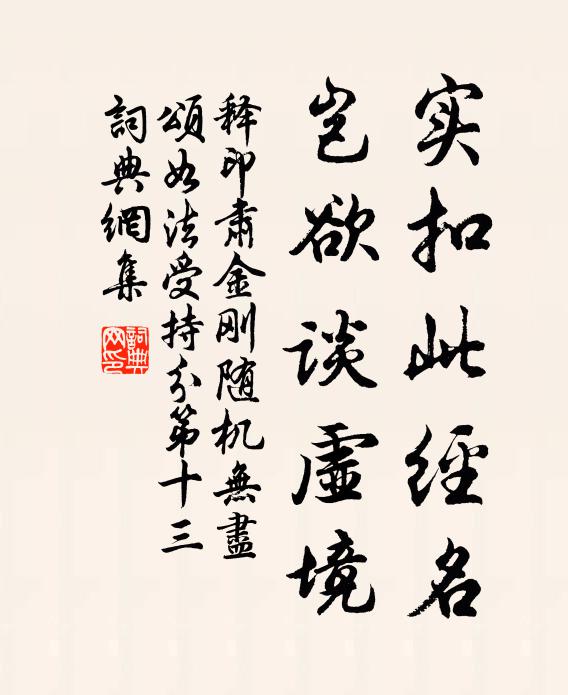 实扣此經名
岂欲谈虚境
释印肃金刚随机無盡
頌如法受持分第十三
詞典網集
詞典
网印